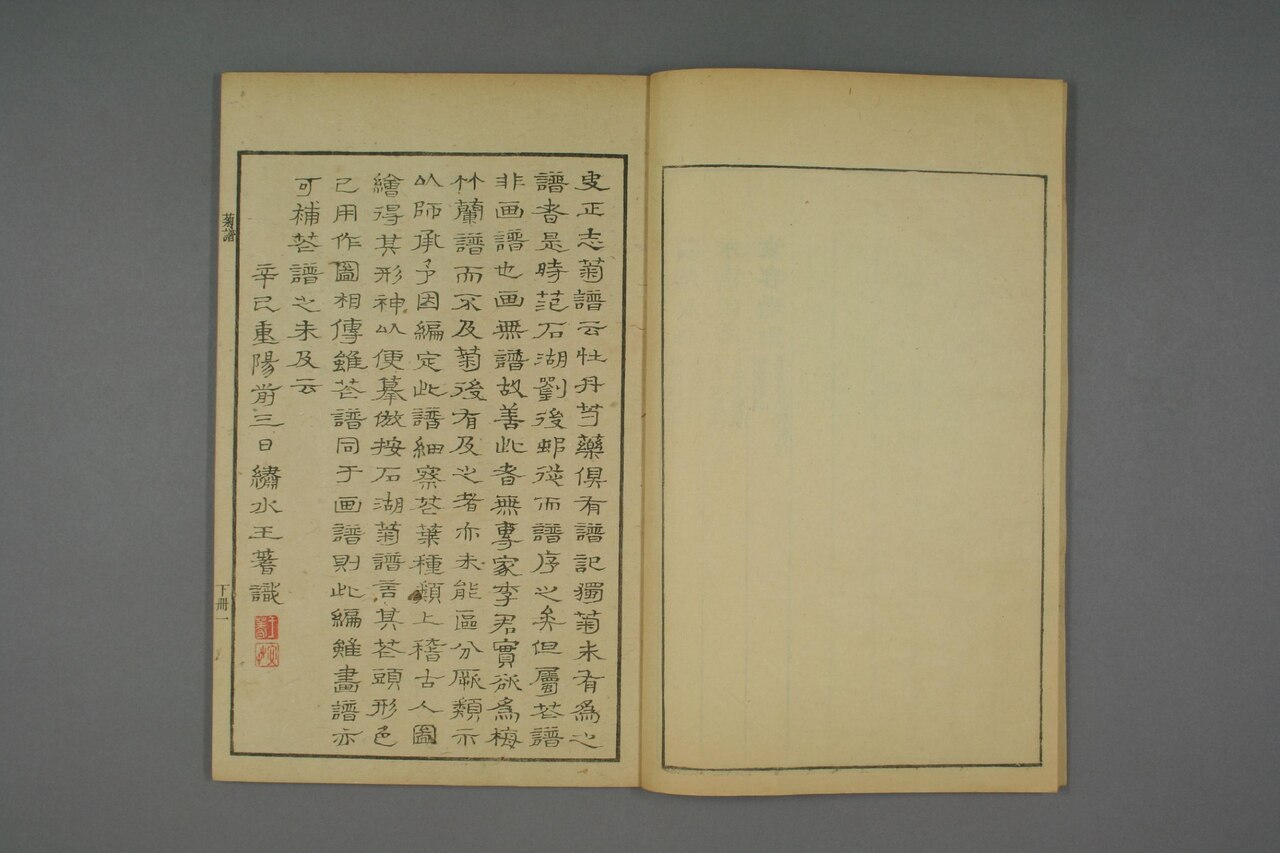 史正志菊譜云牡丹芍藥俱有譜記獨菊未有爲之
譜者是時范石湖劉後邨從而譜序之矣但屬花譜
非画譜也画無譜故善此者無專家李君實欲爲梅
竹蘭譜而不及菊後有及之者亦未能區分厥類示
以師承予因編定此譜細察花葉種類上稽古人圖
繪得其形神以便摹倣按石湖菊譜言其花頭形色
已用作圖相傳雖花譜同于画譜則此編雖畫譜亦
可補花譜之未及云
辛巳重陽前三日繡水王蓍識
菊譜
下冊一